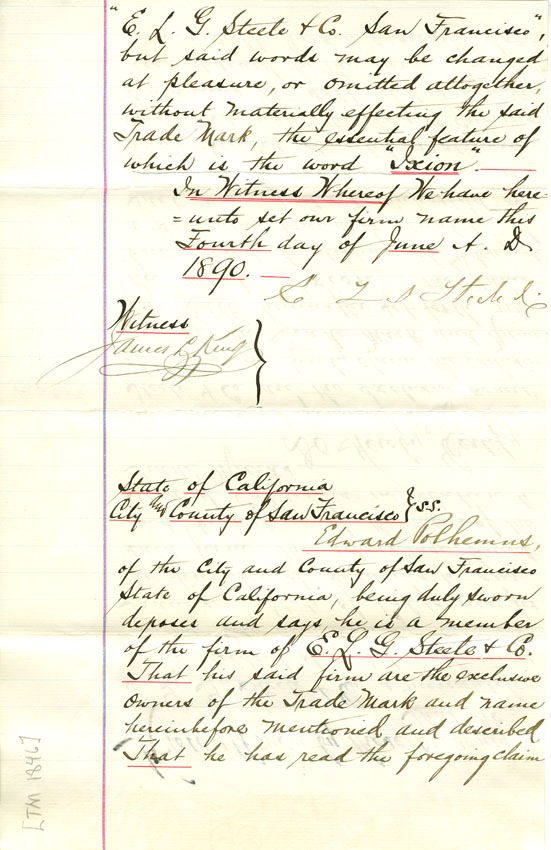 "E. L. G. Steele & Co. San Francisco",
but said words may be changed
at pleasure, or omitted altogether,
without materially effecting the said
Trade Mark, the essential feature of
which is the word "Ixion".
In Witness Whereof We have here
=unto set our firm name this
Fourth day of June A. D
1890.
E L G Steele & Co
Witness
James L King
State of California
City and County of San Francisco } s.s.
Edward Polhemus,
of the City and County of San Francisco
State of California, being duly sworn
deposes and says, he is a member
of the firm of E. L. G. Steele & Co.
That his said firm are the exclusive
owners of the Trade Mark and name
hereinbefore mentioned and described
That he has read the foregoing claim
[TM 1846]